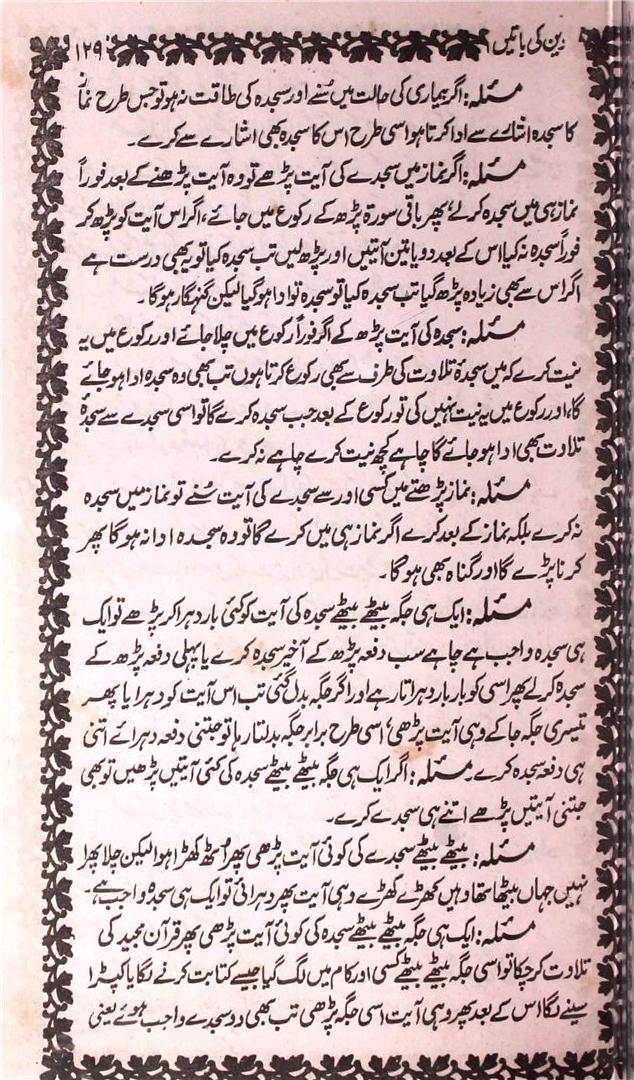 دین کی باتیں ۱۲۹
مسئلہ: اگر بیماری کی حالت میں سُنے اور سجدہ کی طاقت نہ ہو تو جس طرح نماز
کا سجدہ اشارے سے ادا کرتا ہو اسی طرح اس کا سجدہ بھی اشارے سے کرے۔
مسئلہ: اگر نماز میں سجدے کی آیت پڑھے تو وہ آیت پڑھنے کے بعد فوراً
نماز ہی میں سجدہ کر لے، پھر باقی سورۃ پڑھ کے رکوع میں جائے، اگر اس آیت کو پڑھ کر
فوراً سجدہ نہ کیا اس کے بعد دو یا تین آیتیں اور پڑھ لیں تب سجدہ کیا تو یہ بھی درست ہے
اگر اس سے بھی زیادہ پڑھ گیا تب سجدہ کیا تو سجدہ تو ادا ہو گیا لیکن گنہگار ہوگا۔
مسئلہ: سجدہ کی آیت پڑھ کے اگر فوراً رکوع میں چلا جائے اور رکوع میں یہ
نیت کرے کہ میں سجدۂ تلاوت کی طرف سے بھی رکوع کرتا ہوں تب بھی وہ سجدہ ادا ہو جائے
گا، اور رکوع میں یہ نیت نہیں کی تو رکوع کے بعد جب سجدہ کرے گا تو اسی سجدے سے سجدۂ
تلاوت بھی ادا ہو جائے گا چاہے کچھ نیت کرے چاہے نہ کرے۔
مسئلہ: نماز پڑھتے میں کسی اور سے سجدے کی آیت سُنے تو نماز میں سجدہ
نہ کرے بلکہ نماز کے بعد کرے اگر نماز ہی میں کرے گا تو وہ سجدہ ادا نہ ہوگا پھر
کرنا پڑے گا اور گناہ بھی ہوگا۔
مسئلہ: ایک ہی جگہ بیٹھے بیٹھے سجدہ کی آیت کو کئی بار دہرا کر پڑھے تو ایک
ہی سجدہ واجب ہے چاہے سب دفعہ پڑھ کے آخیر سجدہ کرے یا پہلی دفعہ پڑھ کے
سجدہ کر لے پھر اسی کو بار بار دہراتا رہے اور اگر جگہ بدل گئی تب اس آیت کو دہرایا پھر
تیسری جگہ جا کے وہی آیت پڑھی، اسی طرح برابر جگہ بدلتا رہا تو جتنی دفعہ دہرائے اتنی
ہی دفعہ سجدہ کرے۔ مسئلہ: اگر ایک ہی جگہ بیٹھے بیٹھے سجدہ کی کئی آیتیں پڑھیں تو بھی
جتنی آیتیں پڑھے اتنے ہی سجدے کرے۔
مسئلہ: بیٹھے بیٹھے سجدے کی کوئی آیت پڑھی پھر اُٹھ کھڑا ہوا لیکن چلا پھرا
نہیں جہاں بیٹھا تھا وہیں کھڑے کھڑے وہی آیت پھر دہرائی تو ایک ہی سجدہ واجب ہے۔
مسئلہ: ایک ہی جگہ بیٹھے بیٹھے سجدہ کی کوئی آیت پڑھی پھر قرآن مجید کی
تلاوت کر چکا تو اسی جگہ بیٹھے بیٹھے کسی اور کام میں لگ گیا جیسے کتابت کرنے لگا یا کپڑا
سینے لگا اس کے بعد پھر وہی آیت اسی جگہ پڑھی تب بھی دو سجدے واجب ہوئے یعنی